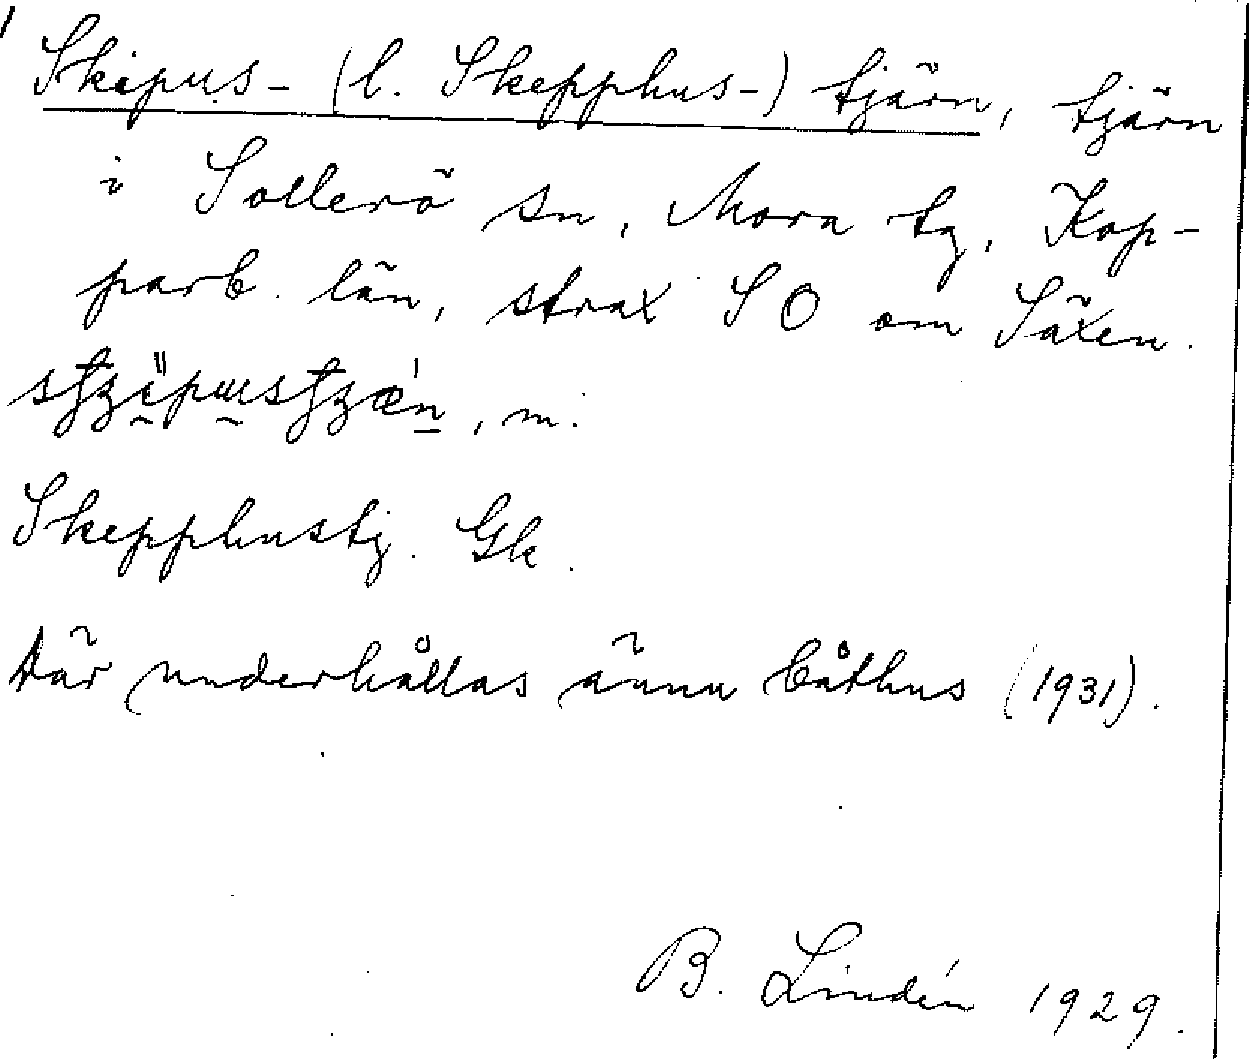 Skipus- (l. Skepphus-) tjärn, tjärn
i Sollerö sn, Mora tg, Kop-
parb. län, strax SO om Säxen.
, m.
Skepphustj. Gk.
Där underhållas ännu båthus (1931).
B. Lindén 1929.